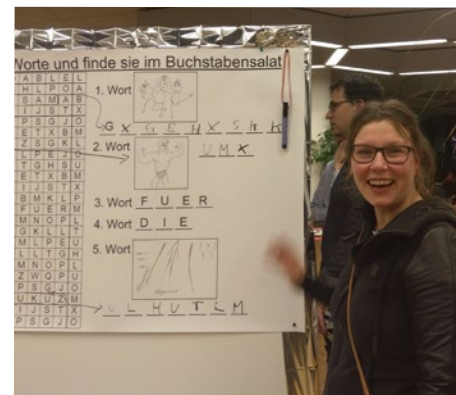 Worte und finde sie im Buchstabensalat
A B L E L
H L P O A
S A M A B
I J S T X
P S G J O
E T X B M
Z S G K L
L P E J O
T G H S U
E T X B M
I J S T X
B M K L P
F U E R M
M N O P L
G K L L T
M L P E U
L L T G H
M N O P L
Z W Q P U
P S G J O
U K U Z M
I J S T X
P S G J O
1. Wort
2. Wort
U M X
3. Wort F U E R
4. Wort D I E
5. Wort